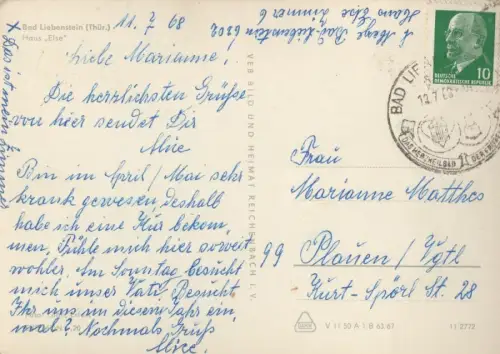 Bad Liebenstein (Thür.)
Haus „Else"
11. 7. 68
Liebe Marianne!
Die herzlichsten Grüße
von hier sendet Dir
Alice
Bin im April / Mai sehr
krank gewesen deshalb
habe ich eine Kur bekom
men, Fühle mich hier soweit
wohler. Am Sonntag besucht
mich unser Vati. Besucht
Ihr uns in diesem Jahr ein
mal? Nochmals Gruß
Alice.
x Das ist mein Zimmer
Bad-Liebenstein 6202
Haus Else Zimmer 6
VEB BILD UND HEIMAT REICHENBACH I. V.
10
DEUTSCHE
DEMOKRATISCHE REPUBLIK
BAD LIE
Frau
Marianne Matthes
99 Plauen / Vgtl
Kurt-Spörl St. 28
V 11 50 A 1 B 63/67
11 2772